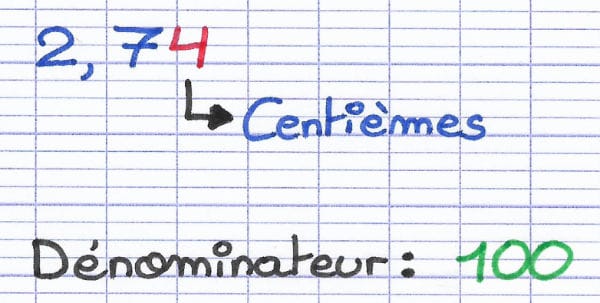 2,74
Centièmes
Dénominateur : 100